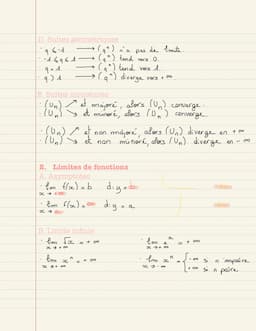 C. Suites géométriques
· q ≤ -1 → (qⁿ) n'a pas de limite.
· -1 < q < 1 → (qⁿ) tend vers 0.
· q = 1 → (qⁿ) tend vers 1.
· q > 1 → (qⁿ) diverge vers +∞
· (Un) ↗ et majoré, alors (Un) converge.
(Un) ↘ et minoré, alors (Un) converge.
· (Un) ↗ et non majoré, alors (Un) diverge en +∞
(Un) ↘ et non minoré, alors (Un) diverge en -∞
2. Limites de fonctions
A. Asymptotes
· lim f(x) = b d: y =
x →
· lim f(x) = d: y = a
x →
B. Limite infinie
· lim √x = +∞ · lim eˣ = +∞
x → +∞ x → +∞
· lim xⁿ = +∞ · lim xⁿ = { -∞ si n impaire
x → +∞ x → -∞ +∞ si n paire.